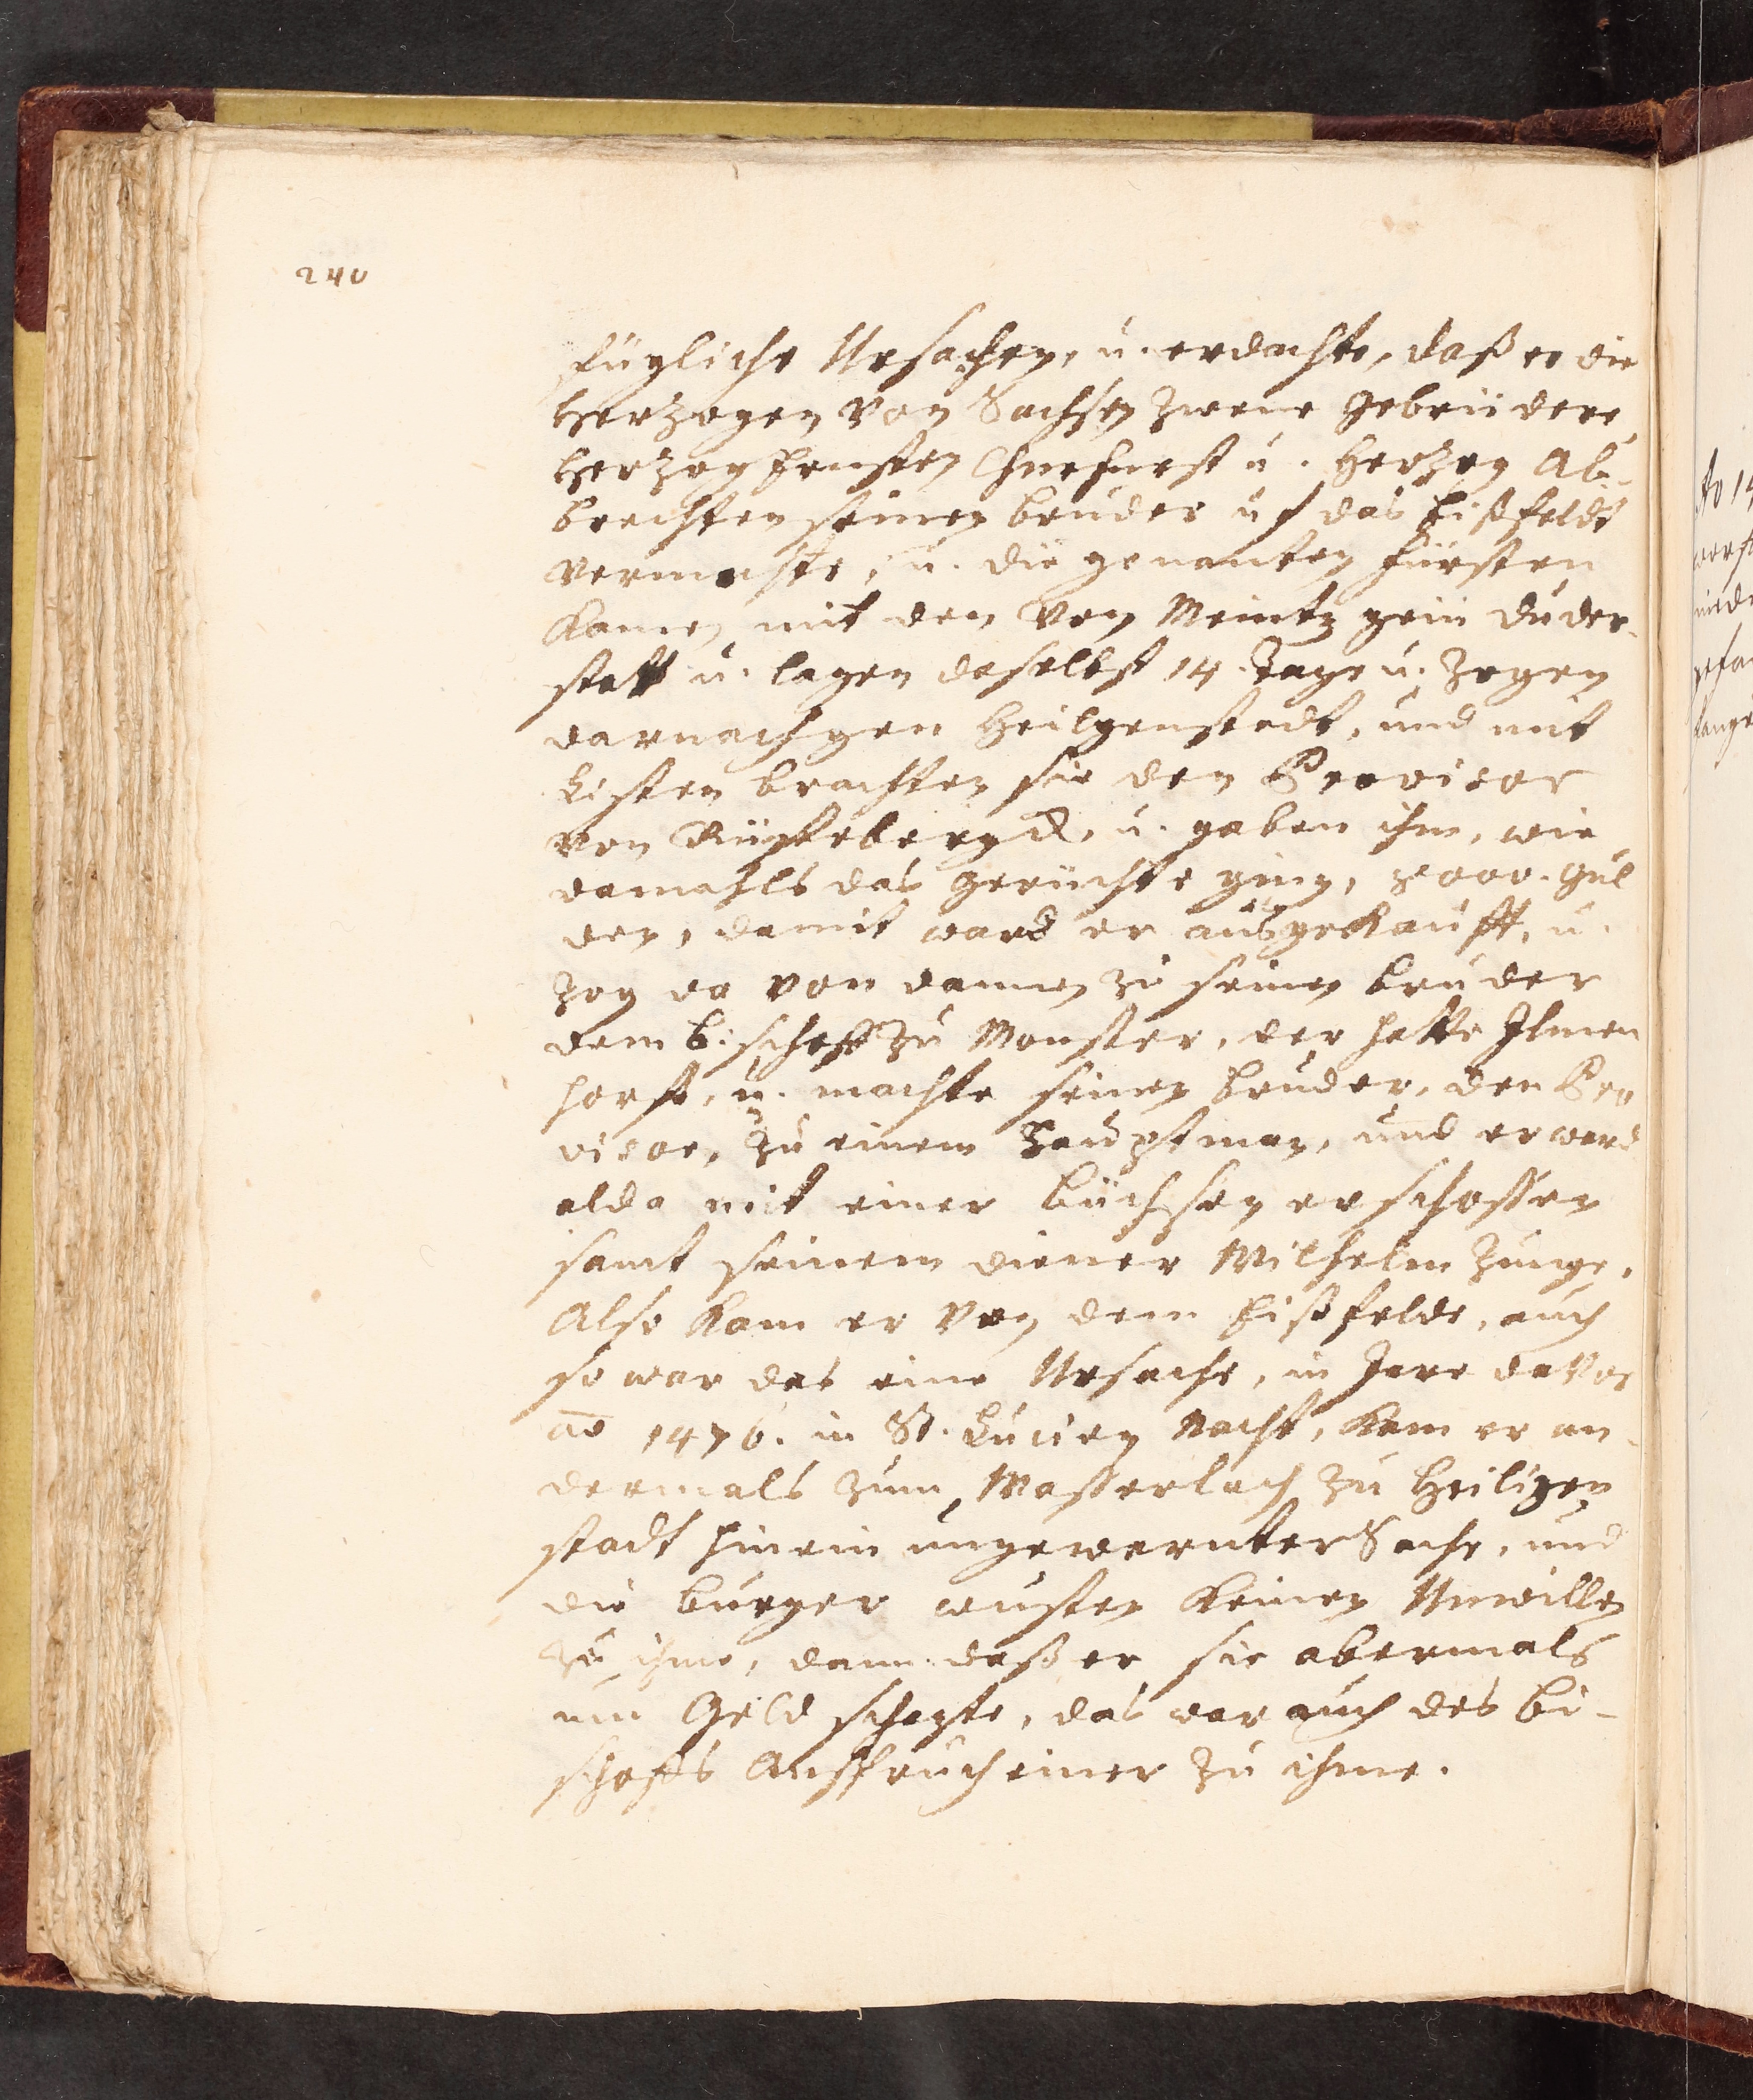 240
fügliche Ursachen, u. erdachte, daß er die
Herzogen von Sachsen zwene Gebrüdere
Herzog Ernsten Churfurst u. Herzog Al-
brechten seinen bruder uf das Eißfeldt
vermochte, u. die genanten fürsten
Kamen mit den von Meintz gein Duder-
statt u. lagen daselbst 14. Tage u. zogen
darnach gen Heilgenstadt, und mit
Listen brachten sie den Provisor
von Rüsteberg, u. gaben ihm, wie
damahls das Gerüchte ging, gul
den, damit ward er ausgekaufft, u.
zog da von dannen zu seinen bruder
dem bischoff zu Monster, der hatte
horst, u. machte seinen bruder, den Pro
visor, zu einem Hauptman, und er ward
alda mit einer büchsen erschossen
samt seinem diener Wilhelm Zunge.
Also kam er von dem Eißfelde, auch
so war das eine Ursache, in Jare davor
ao 1476. in St. Lucien Nacht, kam er an-
dermals zum Wasserlach zu Heiligen
stadt hinein ungewarnter Sache, und
die burger wusten keinen Unwillen
zu ihme, dann daß er sie abermals
um Geld schazte, das war auch des bi-
schoffs Anspruch einer zu ihme.
Ao 14